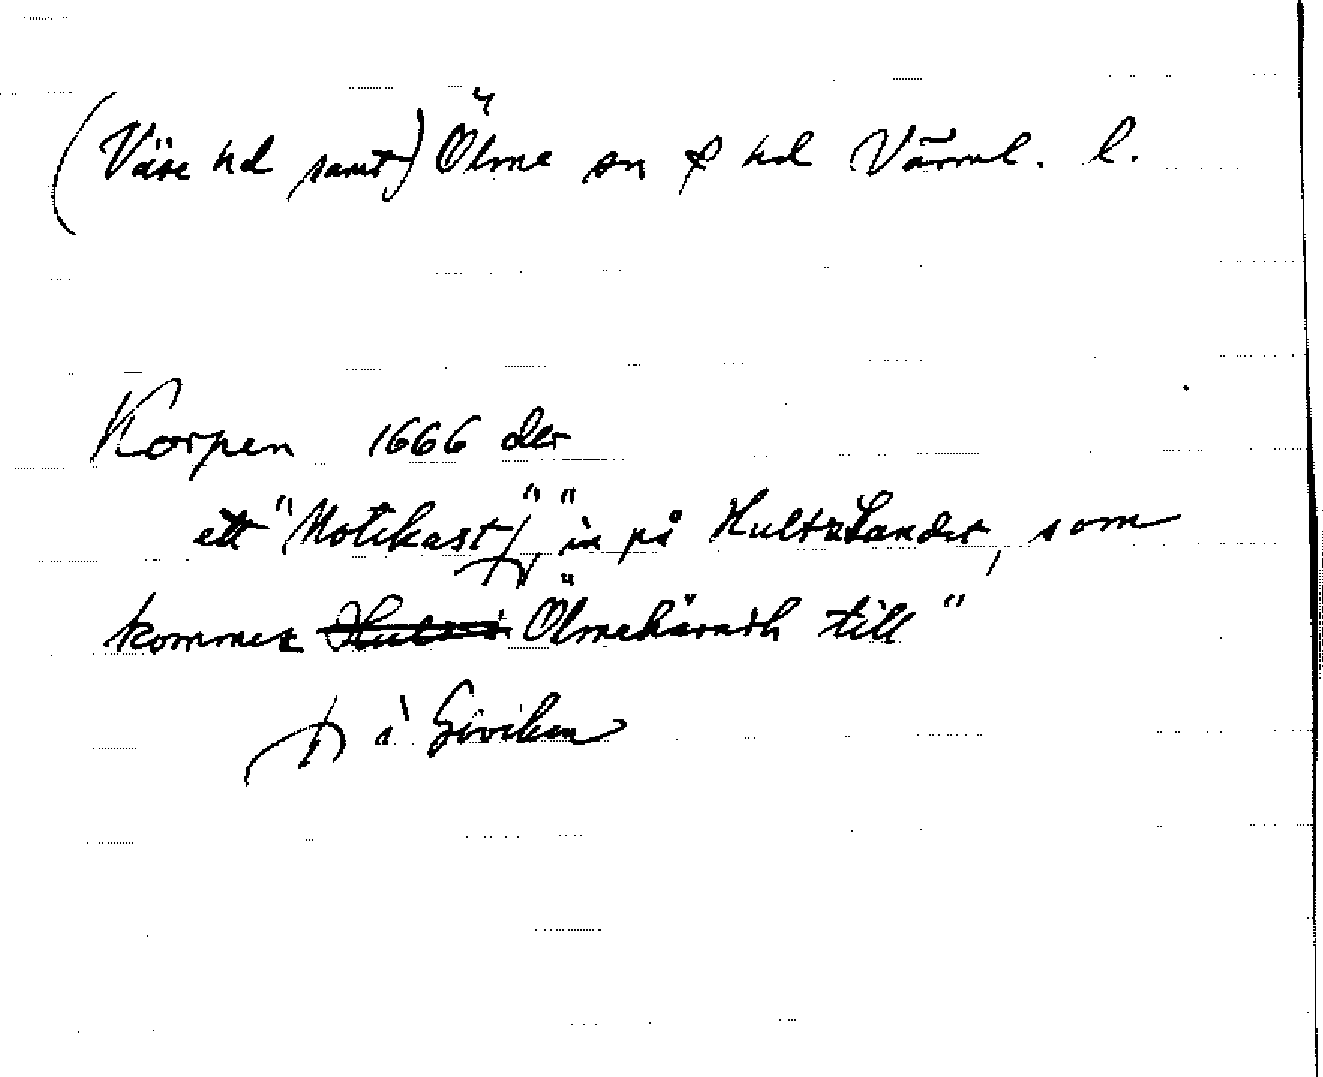 (Väse hd samt) Ölme sn & hd Värml. l.
Korpen 1666 der
ett "Notekast", "in på Hultz Landet, som
kommer Ölmehäradh till"
i Giviken